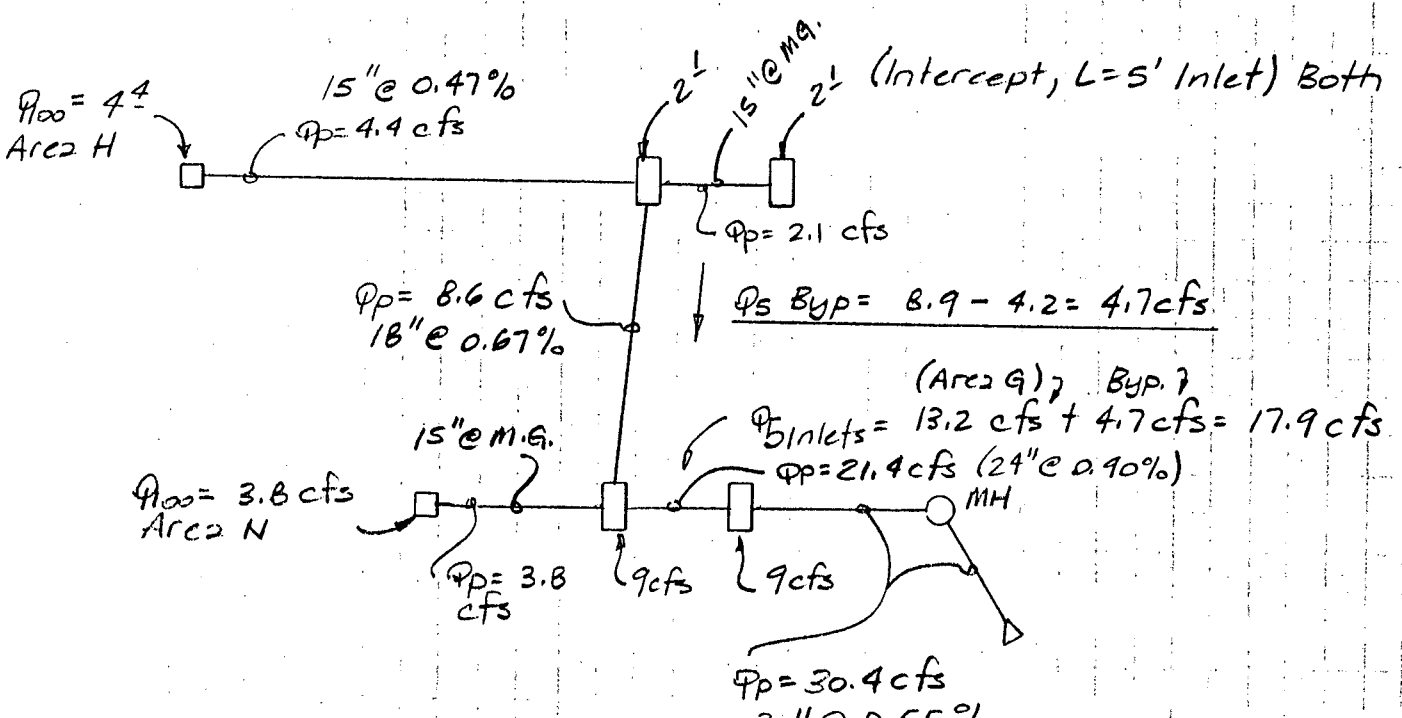 Q100 = 4 4
Area H
15" @ 0.47%
Qp = 4.4 cfs
2 1
15" @ MG.
2 1 (Intercept, L=5' Inlet) Both
Qp = 2.1 cfs
Qp = 8.6 cfs
18" @ 0.67%
Q5 Byp = 8.9 - 4.2 = 4.7 cfs
(Area G) Byp.
Q5 Inlets = 13.2 cfs + 4.7 cfs = 17.9 cfs
15" @ M.G.
Qp = 21.4 cfs (24" @ 0.90%)
MH
Q100 = 3.8 cfs
Area N
Qp = 3.8
cfs
9 cfs
9 cfs
Qp = 30.4 cfs